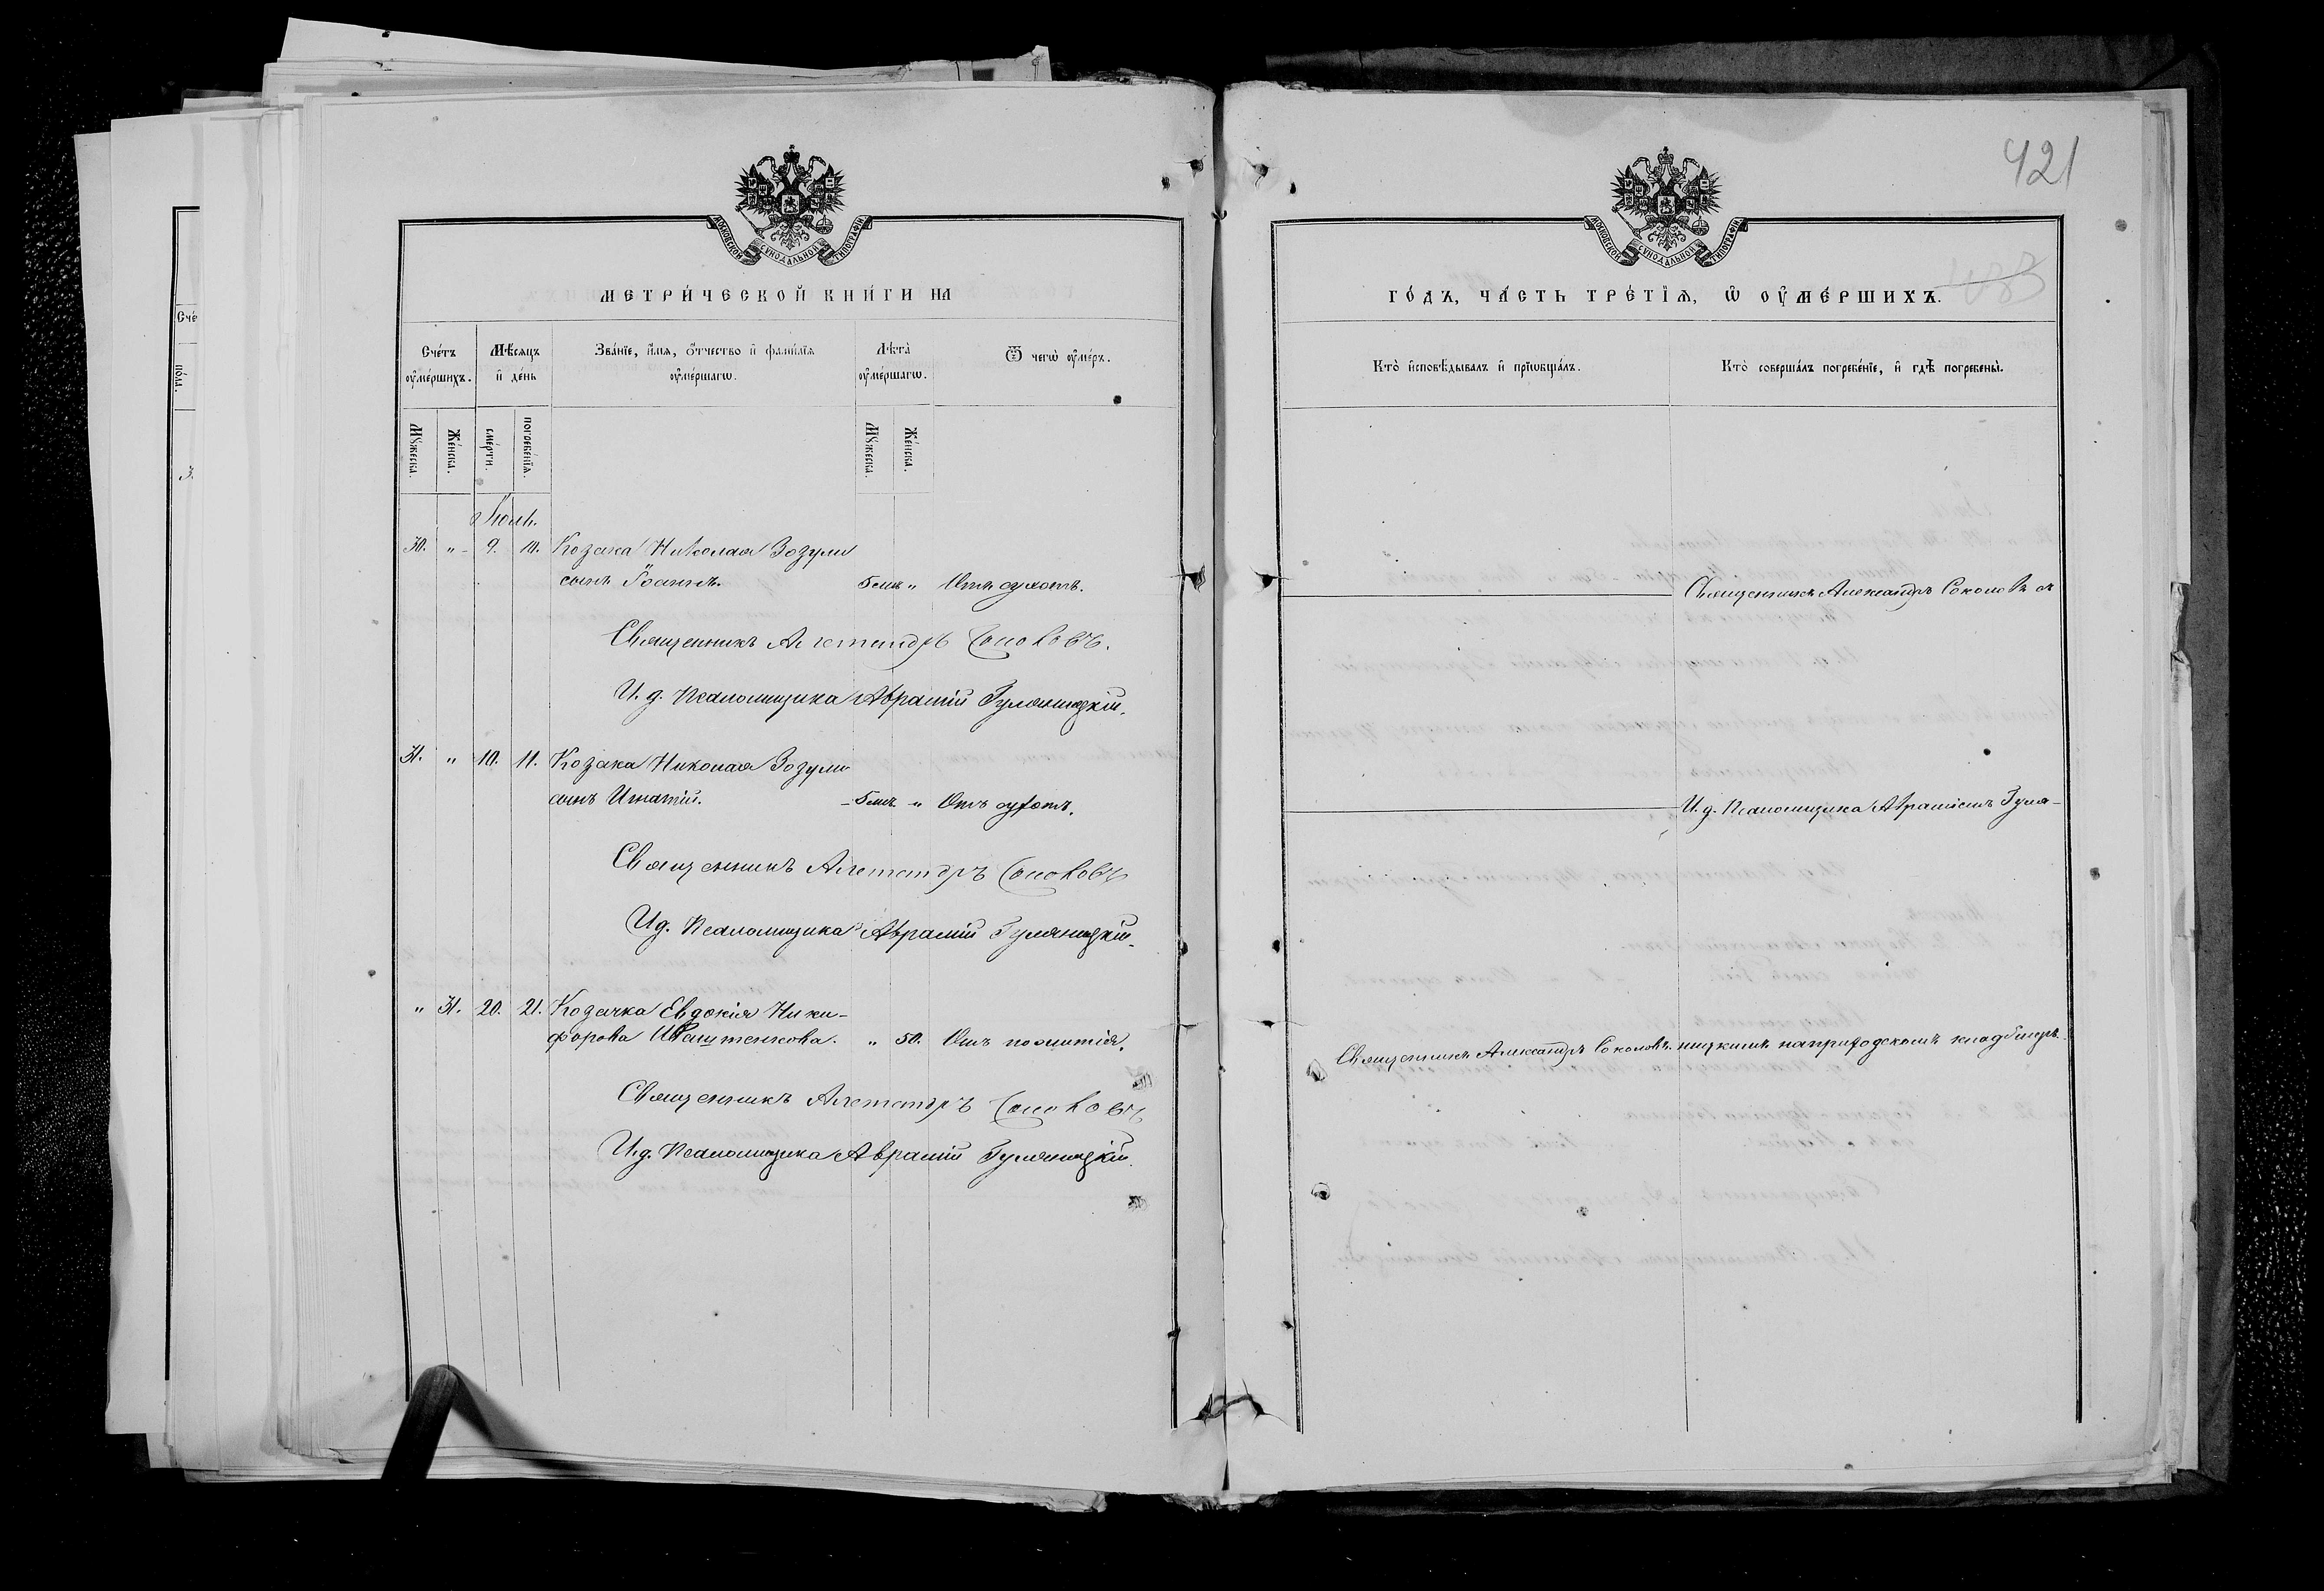 421
МОСКОВСКОЙ СѴНОДАЛЬНОЙ ТИПОГРАФІИ
МЕТРИ́ЧЕСКОЙ КНИ́ГИ НА
Сче́тъ ᲂу҆ме́ршихъ.
Мѣ́сяцъ и҆ де́нь
Зва́нїе, и҆́мя, ѻ҆́тчество и҆ фами́лїя ᲂу҆ме́ршагѡ.
Лѣ́та ᲂу҆ме́ршагѡ.
Ѿ чегѡ̀ ᲂу҆ме́ръ.
Мꙋ́жеска.
Же́нска.
сме́рти.
погребе́нїя.
Мꙋ́жеска.
Же́нска.
Іюль.
30. „ 9. 10. Козака Николая Зозули
сынъ Іоаннъ. 5 мѣ „ Отъ сухотъ.
Священникъ Александръ Соколовъ.
И. д. Псаломщика Аврамій Гуляницкій.
31. „ 10. 11. Козака Николая Зозули
сынъ Игнатій. 5 мѣ „ Отъ сухотъ.
Священникъ Александръ Соколовъ
И д. Псаломщика Аврамій Гуляницкій.
„ 31. 20. 21. Козачка Евдокія Ники-
форова Иващенкова. „ 50. Отъ
Священникъ Александръ Соколовъ
И. д. Псаломщика Аврамій Гуляницкій.
МОСКОВСКОЙ СѴНОДАЛЬНОЙ ТИПОГРАФІИ
ГО́ДЪ, ЧА́СТЬ ТРЕ́ТЇЯ, Ѡ҆ ОУ҆МЕ́РШИХЪ.
Кто̀ и҆сповѣ́дывалъ и҆ прїѡбща́лъ.
Кто̀ соверша́лъ погребе́нїе, и҆ гдѣ̀ погребены̀.
Священникъ Александръ Соколовъ съ
И. д. Псаломщика Аврамiемъ Гуля-
Священникъ Александръ Соколовъ. ницкимъ на приходскомъ кладбищѣ.